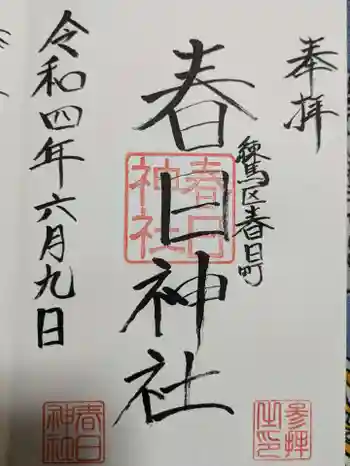 奉拝
練馬区春日町
春日神社
令和四年六月九日
春日神社
参拝之印
春日神社